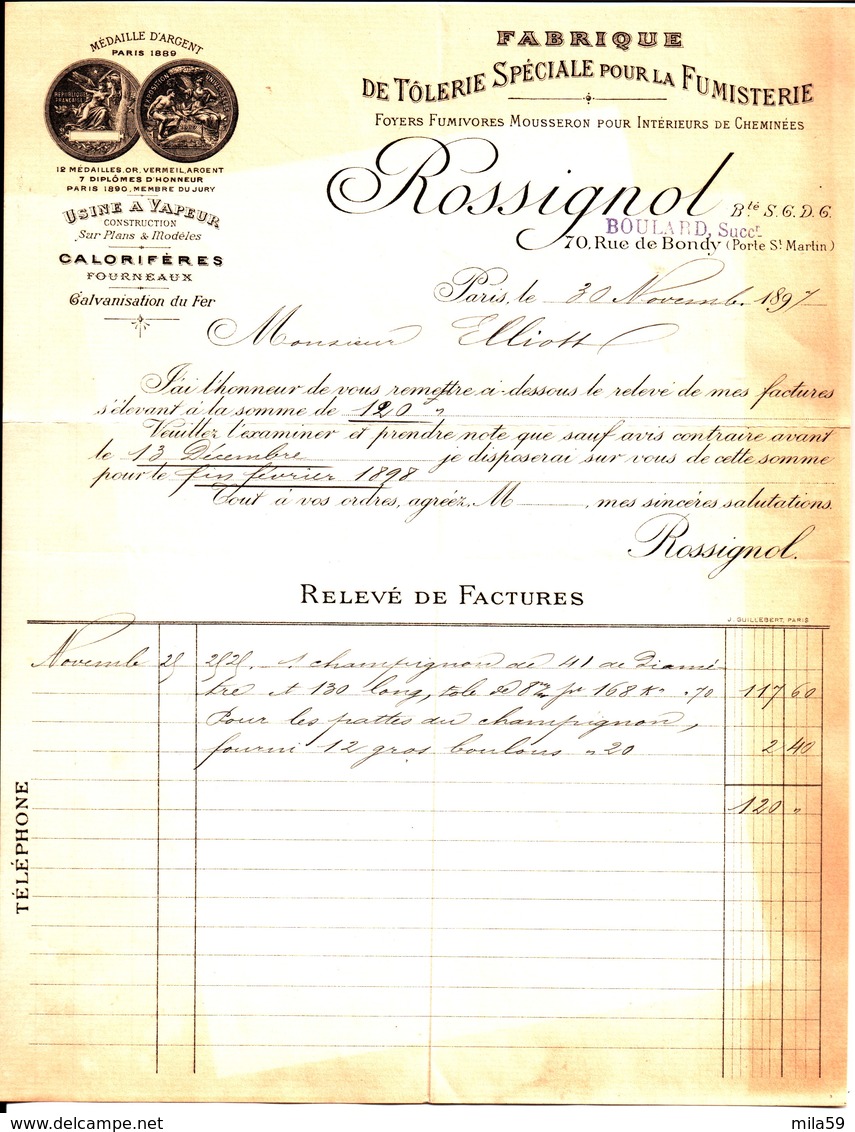 MÉDAILLE D'ARGENT
PARIS 1889
RÉPUBLIQUE FRANÇAISE
EXPOSITION UNIVERSELLE
12 MÉDAILLES, OR, VERMEIL, ARGENT
7 DIPLÔMES D'HONNEUR
PARIS 1890, MEMBRE DU JURY
USINE A VAPEUR
CONSTRUCTION
Sur Plans & Modèles
CALORIFÉRES
FOURNEAUX
Galvanisation du Fer
FABRIQUE
DE TÔLERIE SPÉCIALE POUR LA FUMISTERIE
FOYERS FUMIVORES MOUSSERON POUR INTÉRIEURS DE CHEMINÉES
Rossignol Bté S.G.D.G.
BOULARD, Succr
70, Rue de Bondy (Porte St Martin)
Paris, le 30 Novemb. 1897
Monsieur Elliott
J'ai l'honneur de vous remettre ci-dessous le relevé de mes factures
s'élevant à la somme de 120 "
Veuillez l'examiner et prendre note que sauf avis contraire avant
le 13 Décembre je disposerai sur vous de cette somme
pour le fin février 1898
Tout à vos ordres, agréez, M , mes sincères salutations.
Rossignol.
RELEVÉ DE FACTURES
J. GUILLEBERT, PARIS
Novemb 25 2525. 1 champignon de 41 de Diamè-
tre et 130 long, tole de 8m/m pr 168 Ko "70 117 60
Pour les pattes du champignon,
fourni 12 gros boulons "20 2 40
120 "
TÉLÉPHONE
mila59